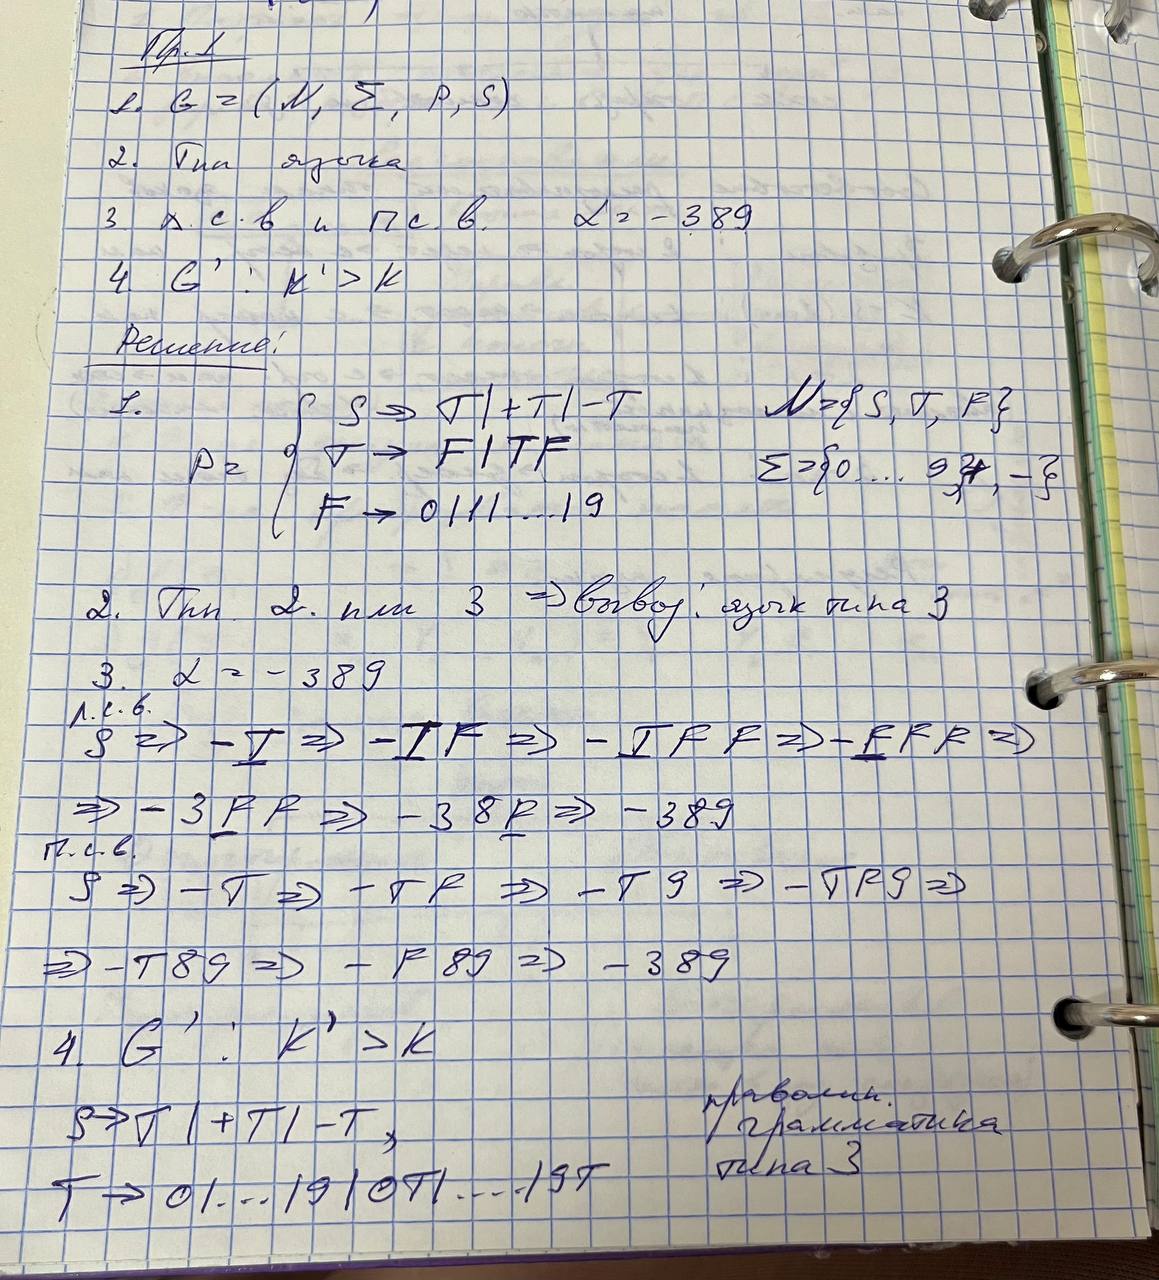 Пр. 1
1. G = (N, Σ, P, S)
2. Тип языка
3. л.с.в и п.с.в. α = -389
4. G' : K' > K
Решение:
1.
P = { S → T|+T|-T N={S, T, F}
T → F|TF Σ={0....9,+,-}
F → 0|1|....|9
2. Тип 2. или 3 ⇒ вывод: язык типа 3
3. α = -389
л.с.в.
S ⇒ -T ⇒ -TF ⇒ -TFF ⇒ -FFF ⇒
⇒ -3FF ⇒ -38F ⇒ -389
п.с.в.
S ⇒ -T ⇒ -TF ⇒ -T9 ⇒ -TF9 ⇒
⇒ -T89 ⇒ -F89 ⇒ -389
4. G' : K' > K
S → T|+T|-T,
T → 0|...|9|0T|.....|9T
праволин.
грамматика
типа 3